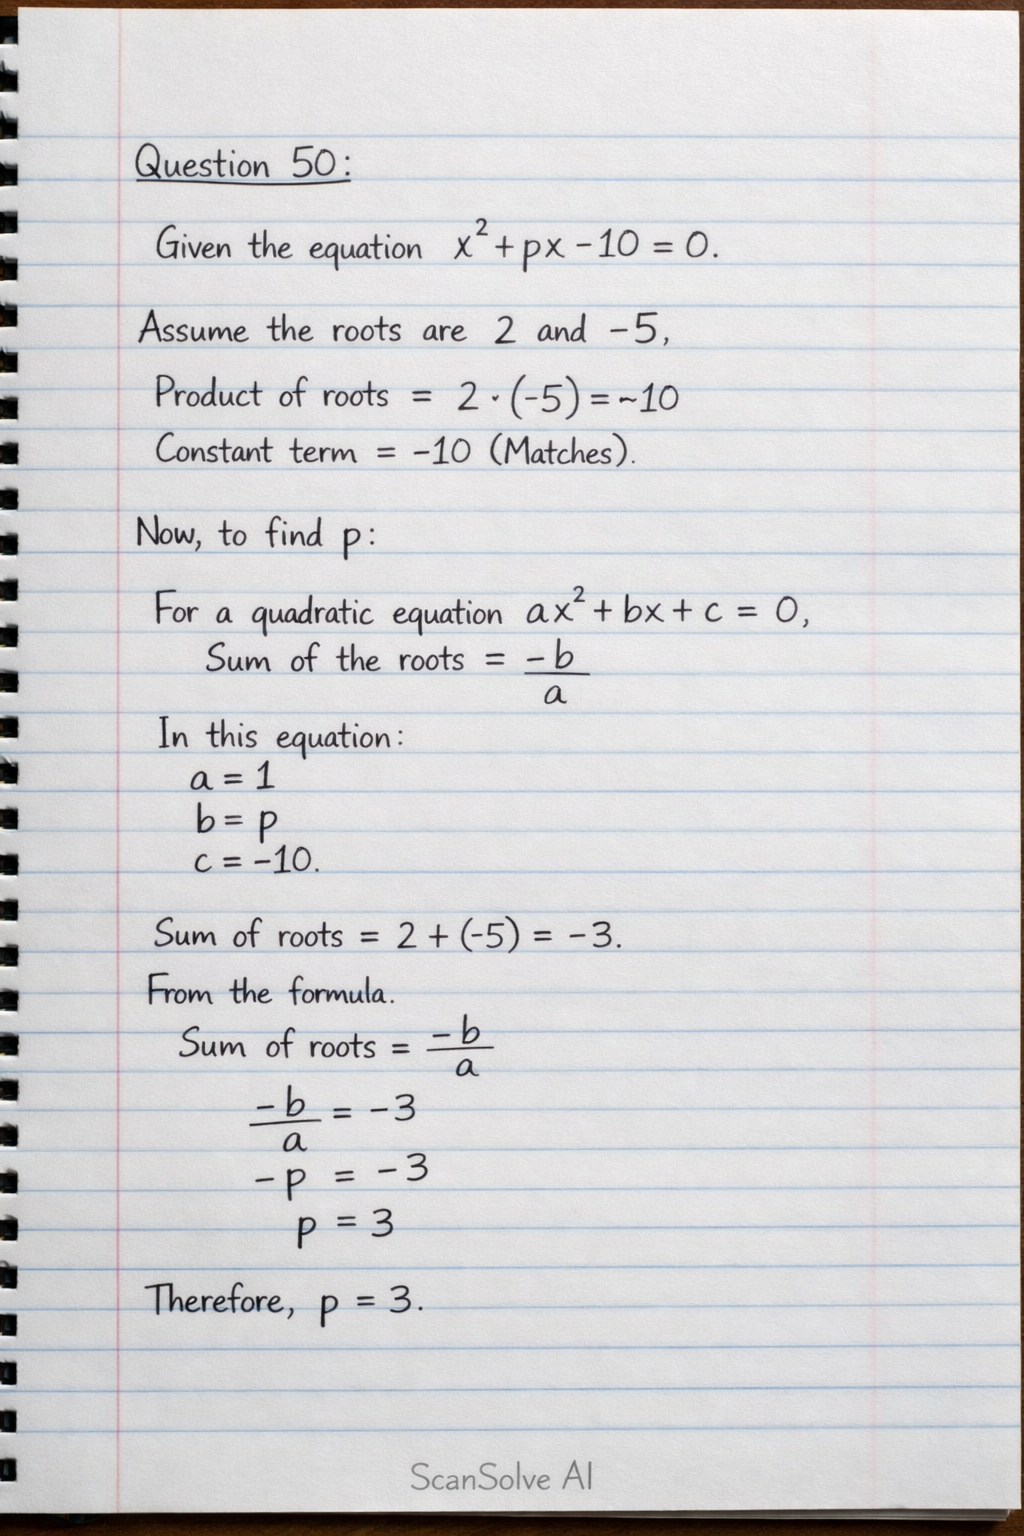 Question 50:
Given the equation x² + px - 10 = 0.
Assume the roots are 2 and -5,
Product of roots = 2 · (-5) = ~10
Constant term = -10 (Matches).
Now, to find p:
For a quadratic equation ax² + bx + c = 0,
Sum of the roots = -b/a
In this equation:
a = 1
b = p
c = -10.
Sum of roots = 2 + (-5) = -3.
From the formula.
Sum of roots = -b/a
-b/a = -3
-p = -3
p = 3
Therefore, p = 3.
ScanSolve AI